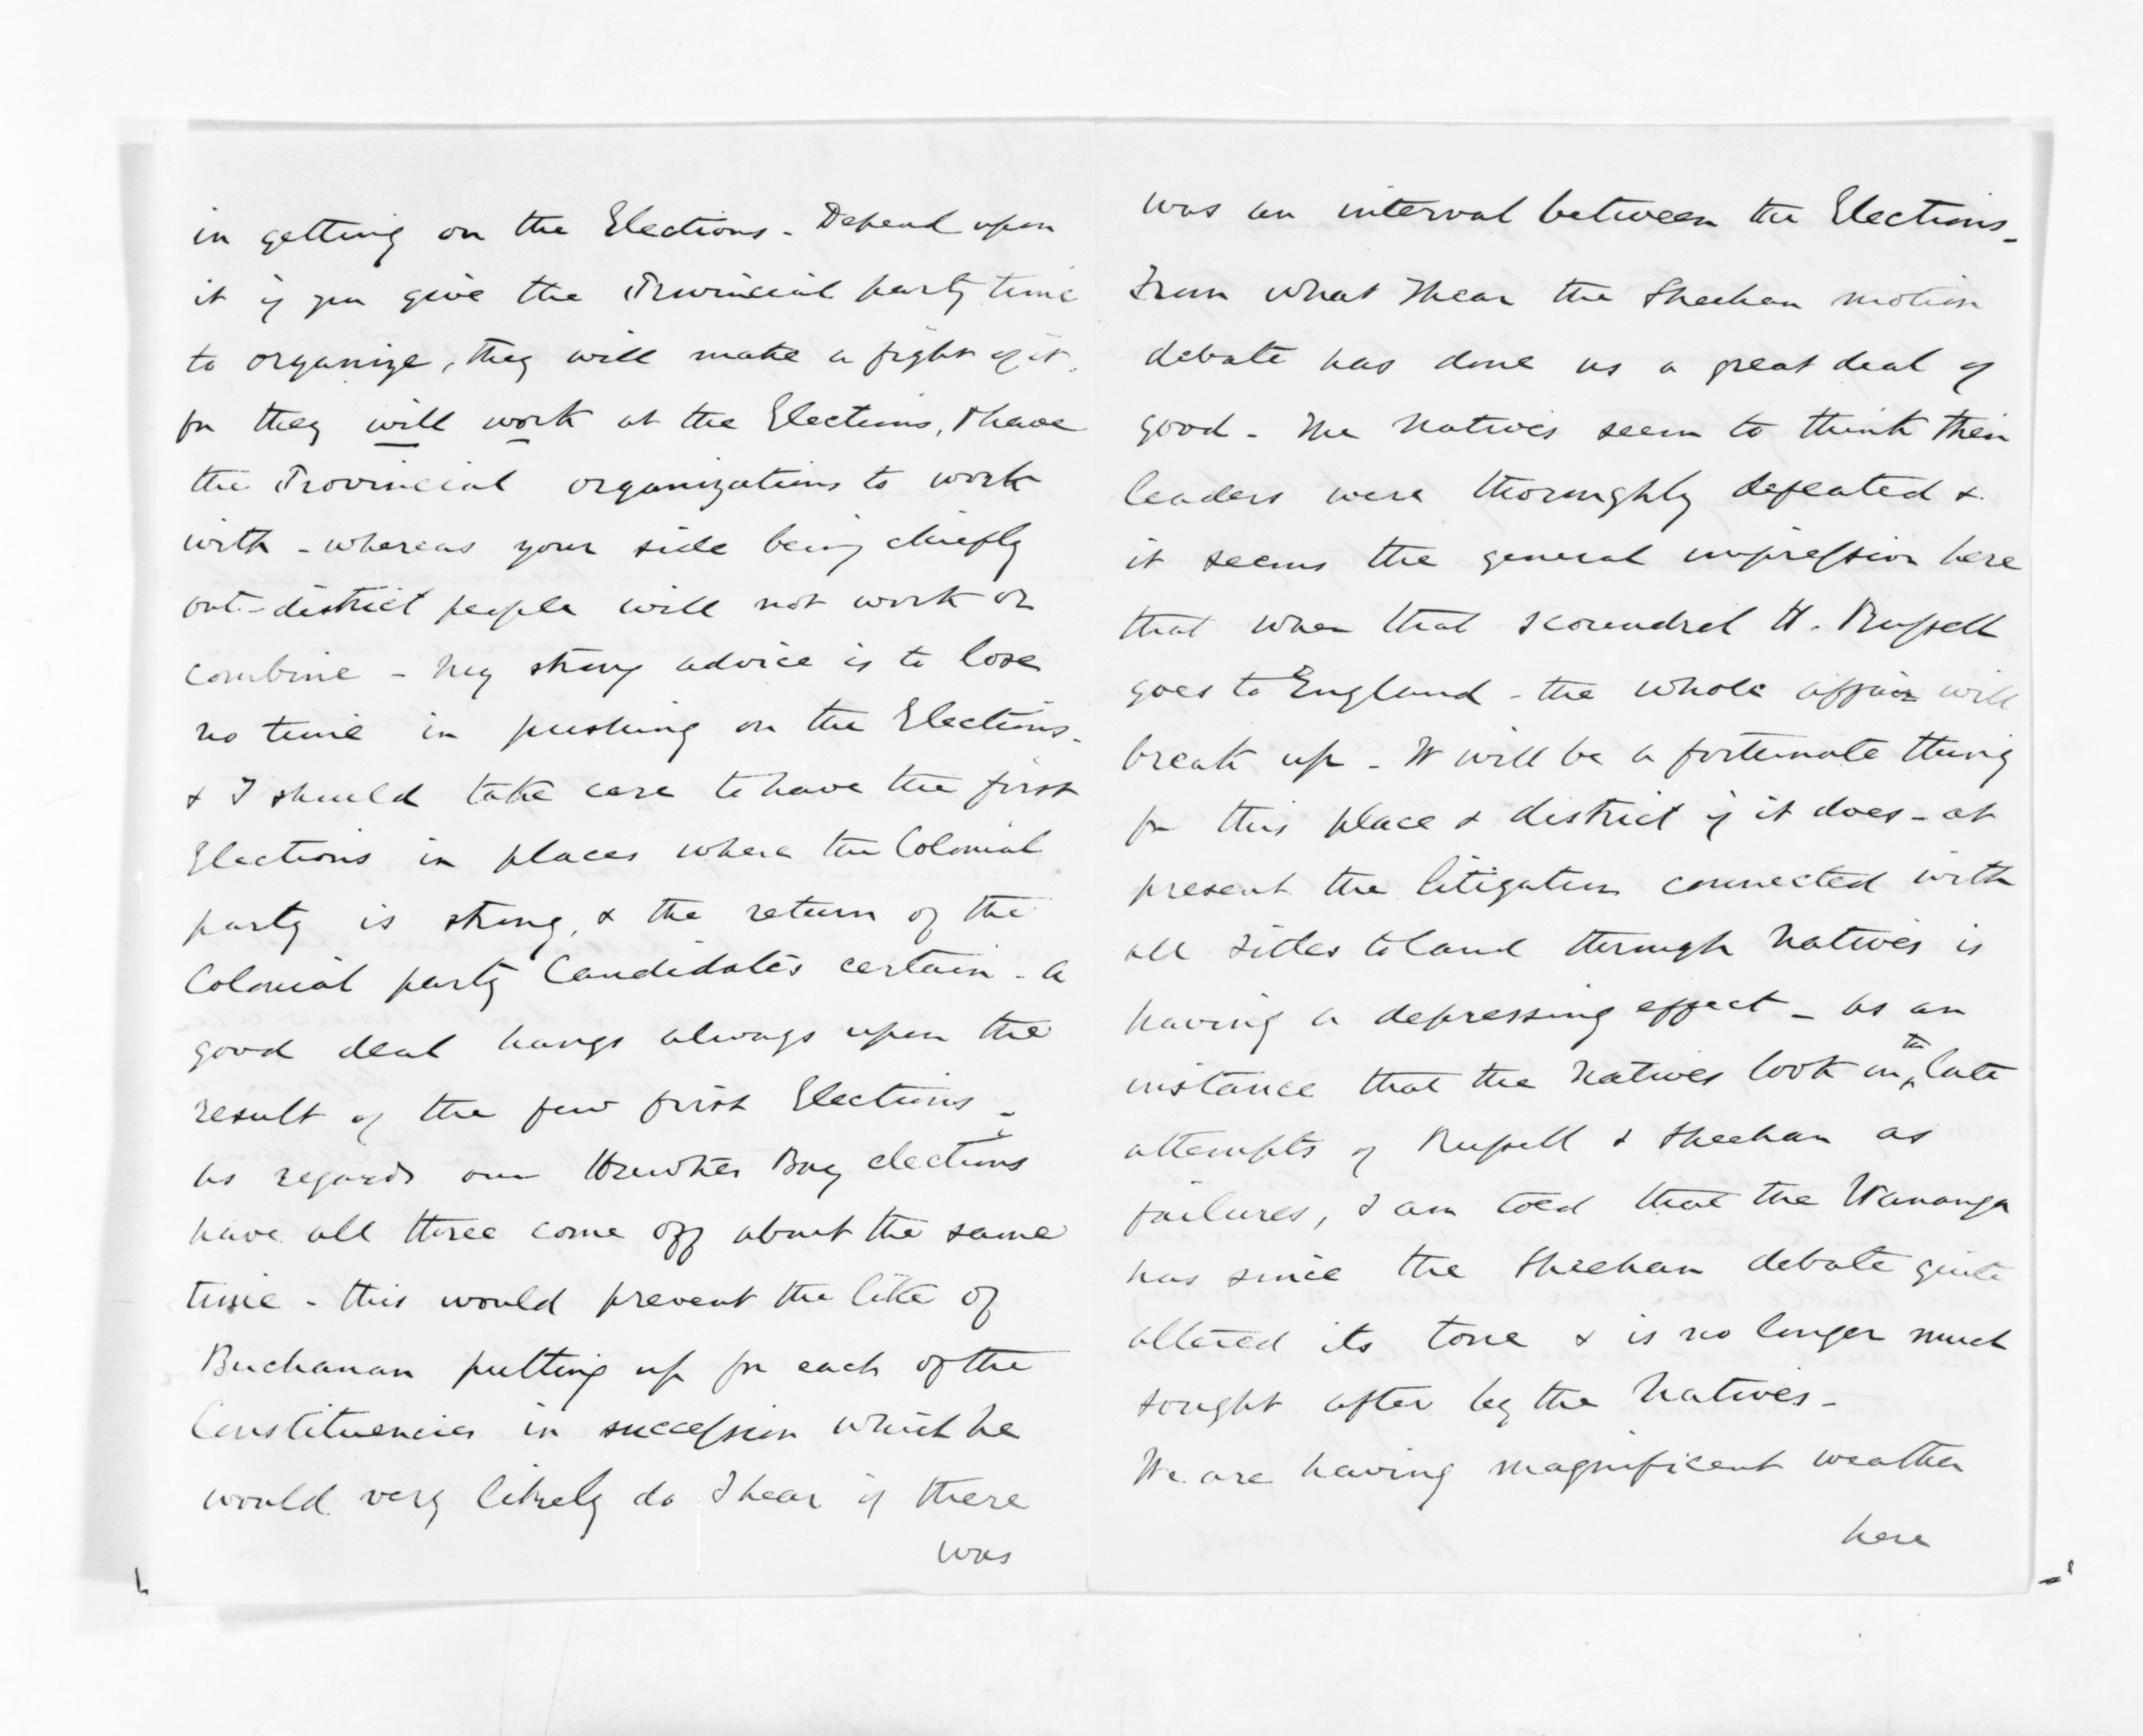 in getting on the Elections - Depend upon
it if you give the Provincial party time
to organize, they will make a fight of it.
for they will work at the Elections, & have
the Provincial organizations to work
with - whereas your side being chiefly
out-district people will not work or
combine - My strong advice is to lose
no time in pushing on the Elections.
& I should take care to have the first
Elections in places where the Colonial
party is strong, & the return of the
Colonial party Candidates certain - a
good deal hangs always upon the
result of the few first Elections -
As regards our Hawkes Bay elections
have all three come off about the same
time - this would prevent the like of
Buchanan putting up for each of the
Constituencies in succession which he
would very likely do I hear if there
was
was an interval between the Elections -
From what I hear the Sheehan motion
debate has done us a great deal of
good - The Natives seem to think their
leaders were thoroughly defeated &
it seems the general impression here
that when that scoundrel H. Russell
goes to England - the whole affair will
break up - It will be a fortunate thing
for this place & district if it does - at
present the litigation connected with
all titles to land through Natives is
having a depressing effect - As an
instance that the Natives look on the late
attempts of Russell & Sheehan as
failures, I am told that the Wananga
has since the Sheehan debate quite
altered its tone & is no longer much
sought after by the Natives -
We are having magnificent weather
here